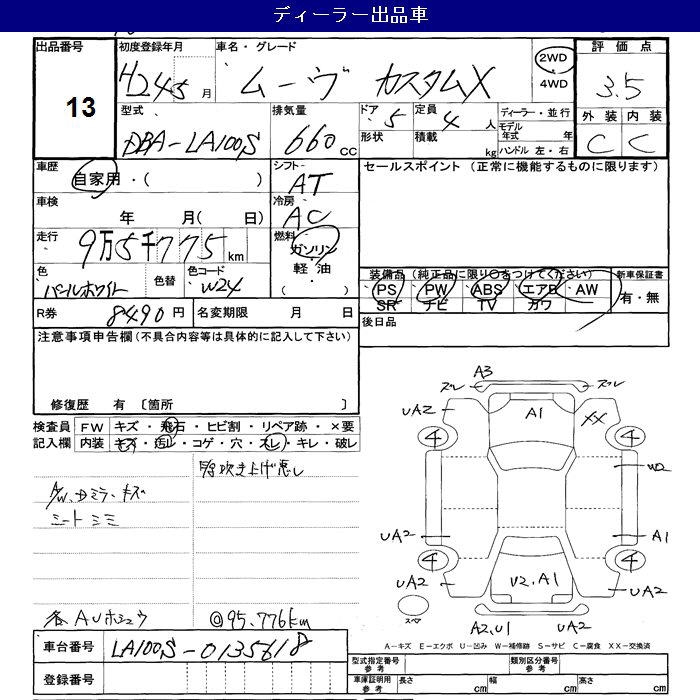 ディーラー出品車
出品番号 初度登録年月 車名・グレード 評価点
13
H24 5月 ムーヴ カスタムX 2WD 4WD 3.5
型式 排気量 ドア 5 定員 4人 ディーラー・並行 外装 内装
DBA-LA100S 660cc 形状 積載 kg モデル年式 年 C C
ハンドル 左・右
車歴 シフト セールスポイント (正常に機能するものに限ります)
自家用・( ) AT
車検 冷房
年 月( 日) AC
走行 燃料
9万5千775km ガソリン
軽油
( )
色 色替 色コード 装備品 (純正品に限り○をつけてください) 新車保証書
パールホワイト W24 PS PW ABS エアB AW 有・無
SR ナビ TV カワ
R券 8490円 名変期限 月 日 後日品
注意事項申告欄 (不具合内容等は具体的に記入して下さい)
修復歴 有 〔箇所 〕
検査員 FW キズ・飛石・ヒビ割・リペア跡・×要
記入欄 内装 キズ・汚レ・コゲ・穴・スレ・キレ・破レ
吹き上げ悪し
A/W、Dミラーキズ
シートシミ
各AUホシュウ ◎95,776km
車台番号 LA100S-0135618
登録番号
A3
スレ スレ
UA2 A1 XX
4 4
W2
UA2 A1
4 4
UA2 U2、A1 UA2
スペア
A2、U1 UA2
A-キズ E-エクボ U-凹み W-補修跡 S-サビ C-腐食 XX-交換済
型式指定番号 参考 類別区分番号 参考
車庫証明用 参考 長さ cm 幅 cm 高さ cm